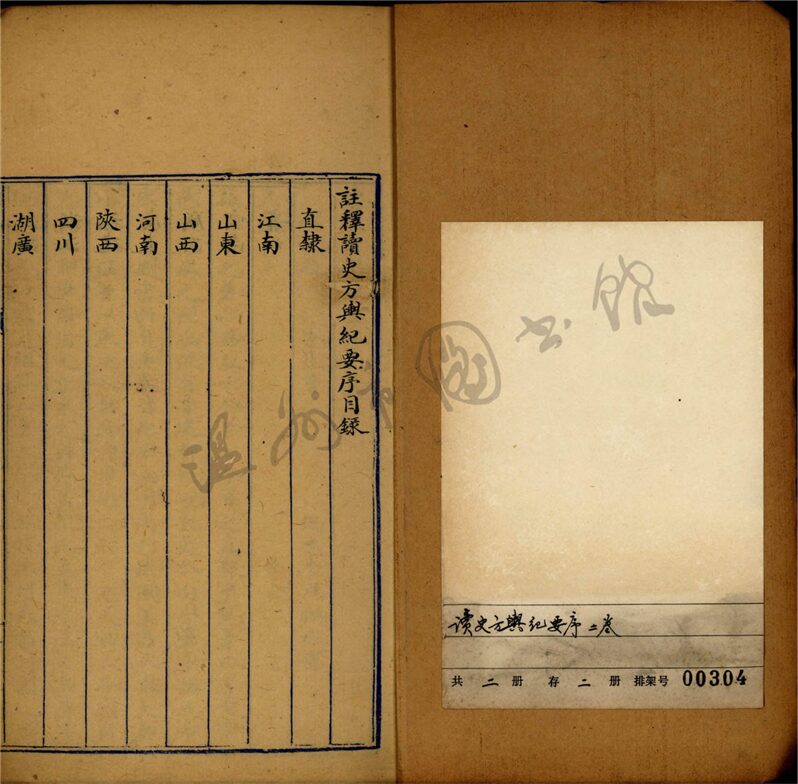 註釋讀史方輿紀要序目錄
直隸
江南
山東
山西
河南
陝西
四川
湖廣
读史方輿纪要序 二卷
共 二 册 存 二 册 排架号 00304
温州市图书馆